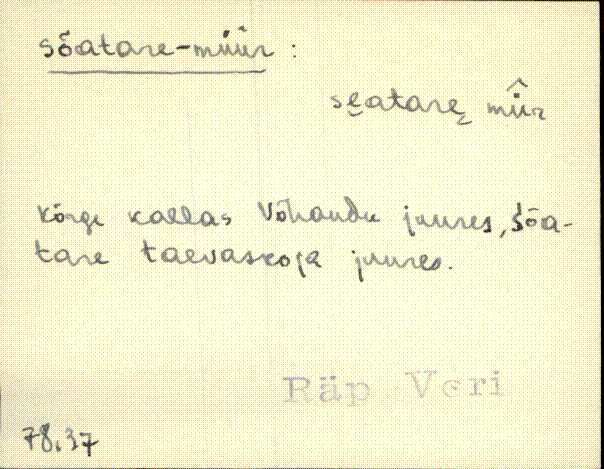 sõatare-müür :
sẹatarẹ mü̂r
Kõrge kallas Võhandu juures, Sõa-
tare taevaskoja juures.
Räp Veri
78.37